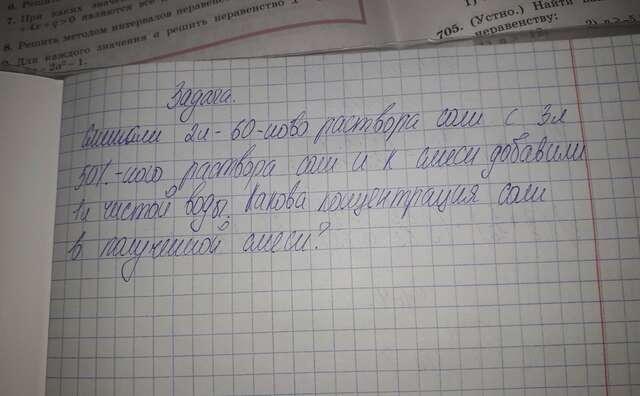 6. Решить
7. При каких значе
+ 4x + q > 0 являются все
8. Решить методом интервалов неравенс
9. Для каждого значения a решить неравенство
2a² − 1.
705. (Устно.) Найти
неравенству:
Задача.
Смешали 2л - 60-ного раствора соли с 3л
50%-ного раствора соли и к смеси добавили
1л чистой воды. Какова концентрация соли
в полученной смеси?